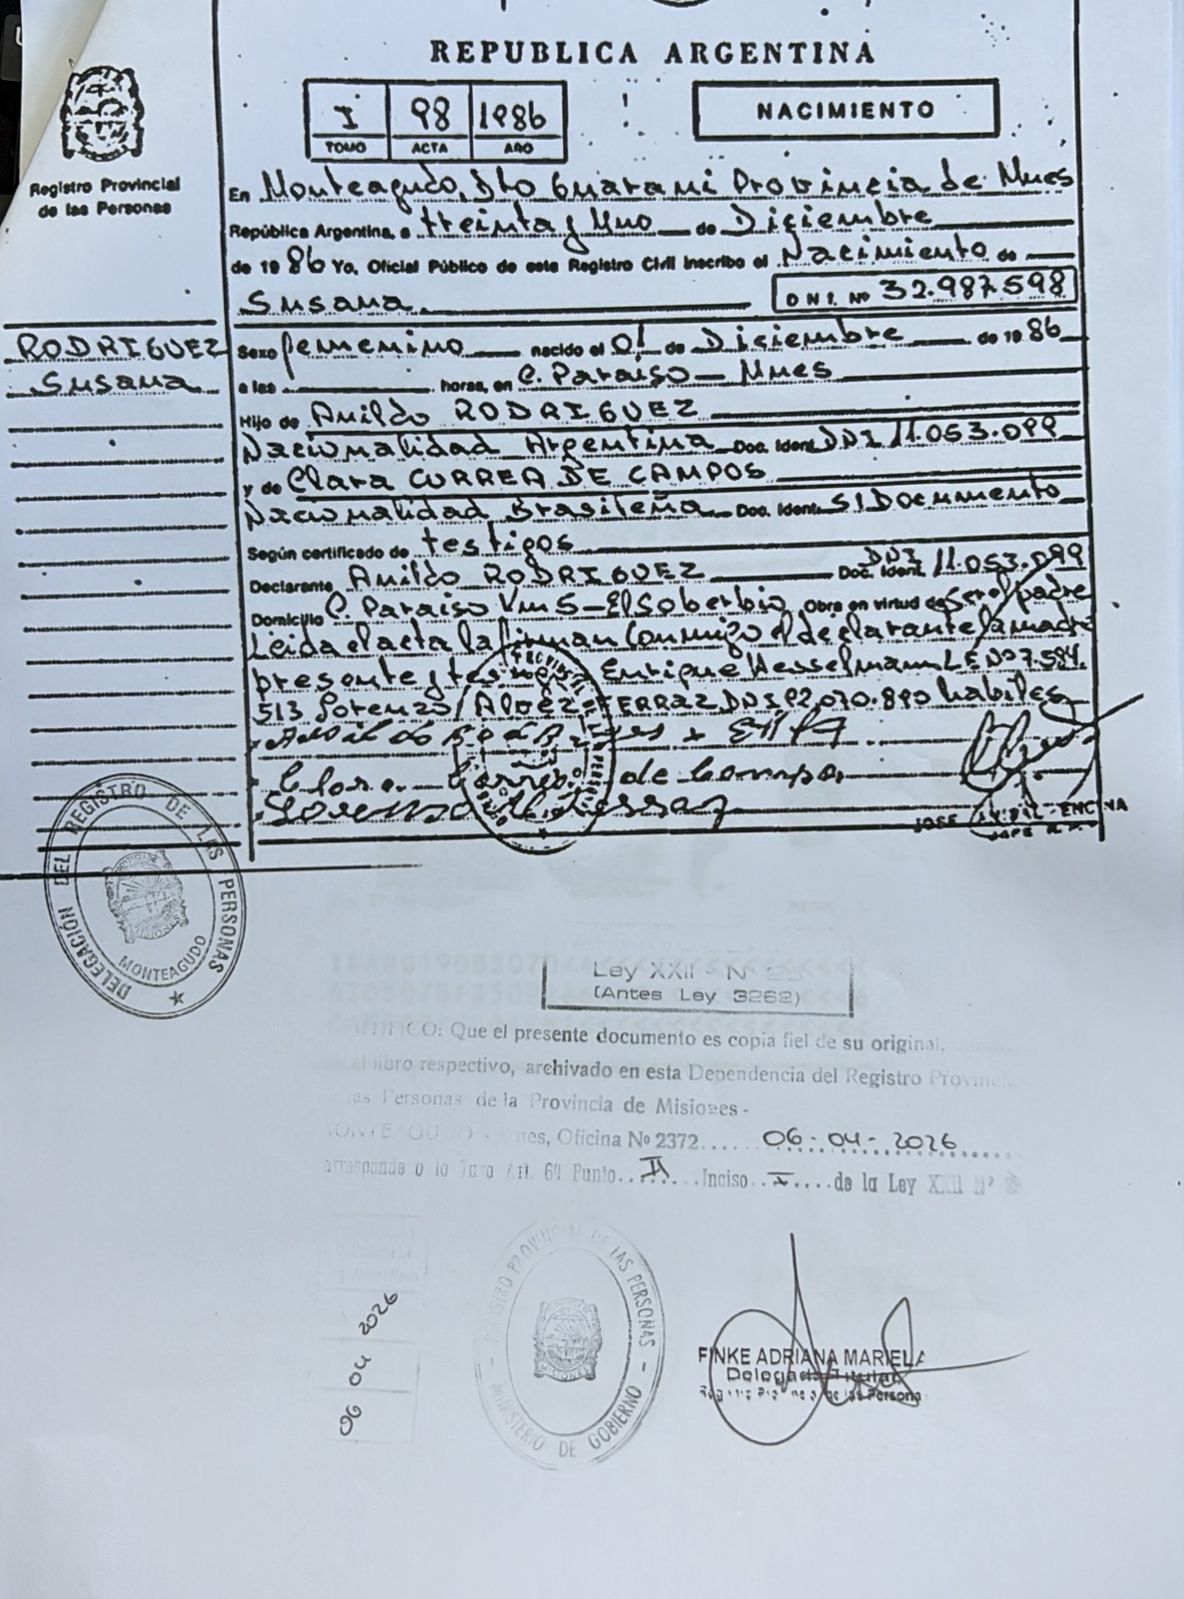 REPUBLICA ARGENTINA
I 98 1986
TOMO ACTA AÑO
NACIMIENTO
Registro Provincial
de las Personas
En Monteagudo, Dto Guarani Provincia de Mnes
República Argentina, a treinta y uno de Diciembre
de 1986 Yo, Oficial Público de este Registro Civil inscribo el Nacimiento de
Susana D N I. Nº 32.987.598
RODRIGUEZ
Susana
Sexo femenino nacido el 01 de Diciembre de 1986
a las horas, en C. Paraiso - Mnes
Hijo de Anildo RODRIGUEZ
Nacionalidad Argentina Doc. Ident. DNI 11.053.099
y de Clara CORREA DE CAMPOS
Nacionalidad Brasileña Doc. Ident. S/Documento
Según certificado de testigos
Declarante Anildo RODRIGUEZ Doc. Ident. DNI 11.053.099
Domicilio C. Paraiso Km 5 - El Soberbio Obra en virtud de ser el padre
Leida el acta la firman conmigo el declarante la madre
presente y Enrique Hesselmann LE Nº 7.584.
513 Lorenzo Alvez FERRAZ DNI 92.070.890 habiles
Clara Correa de Campos
JOSE ENCINA
DELEGACIÓN DEL REGISTRO DE LAS PERSONAS
MONTEAGUDO
Ley XXII - N
(Antes Ley 3262)
Que el presente documento es copia fiel de su original,
el libro respectivo, archivado en esta Dependencia del Registro
las Personas de la Provincia de Misiones -
Oficina Nº 2372 06-04-2026
Punto II Inciso I de la Ley XXII Nº
PROVINCIAL DE LAS PERSONAS
MINISTERIO DE GOBIERNO
06 04 2026
FINKE ADRIANA MARIELA
Delegada Titular